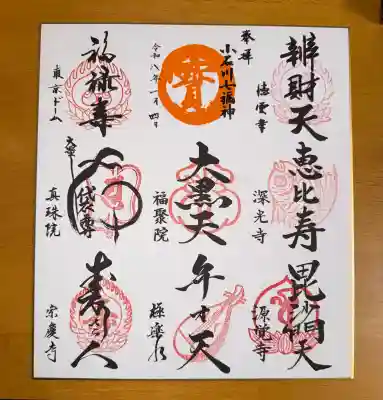 奉拝
小石川七福神
令和八年一月四日
寶
辨財天
徳雲寺
恵比寿
深光寺
毘沙門天
源覚寺
大黒天
福聚院
弁財天
極楽水
福禄寿
東京ドーム
布袋尊
真珠院
寿老人
宗慶寺